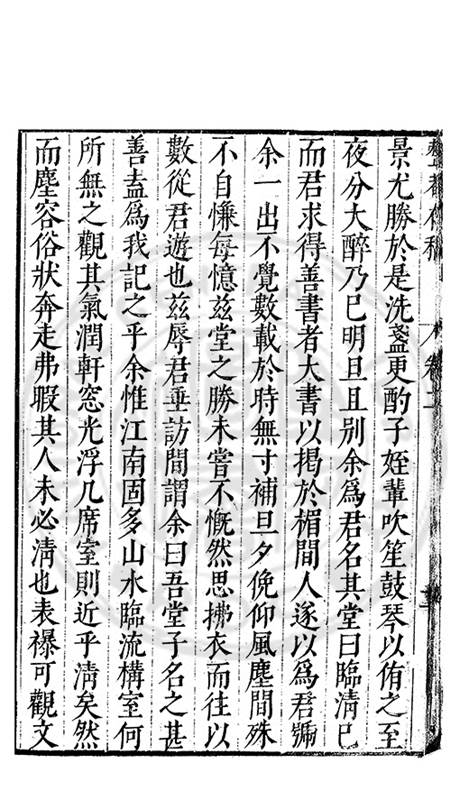 景尤勝於是洗盞更酌子姪輩吹笙鼓琴以侑之至
夜分大醉乃已明旦且别余為君名其堂曰臨清已
而君求得善書者大書以揭於楣間人遂以為君號
余一出不覺數載於時無寸補旦夕俛仰風塵間殊
不自慊每憶兹堂之勝未嘗不慨然思拂衣而往以
數從君遊也兹辱君垂訪間謂余曰吾堂子名之甚
善盍為我記之乎余惟江南固多山水臨流構室何
所無之觀其氣潤軒窓光浮几席室則近乎清矣然
而塵容俗狀奔走弗暇其人未必清也表襮可觀文